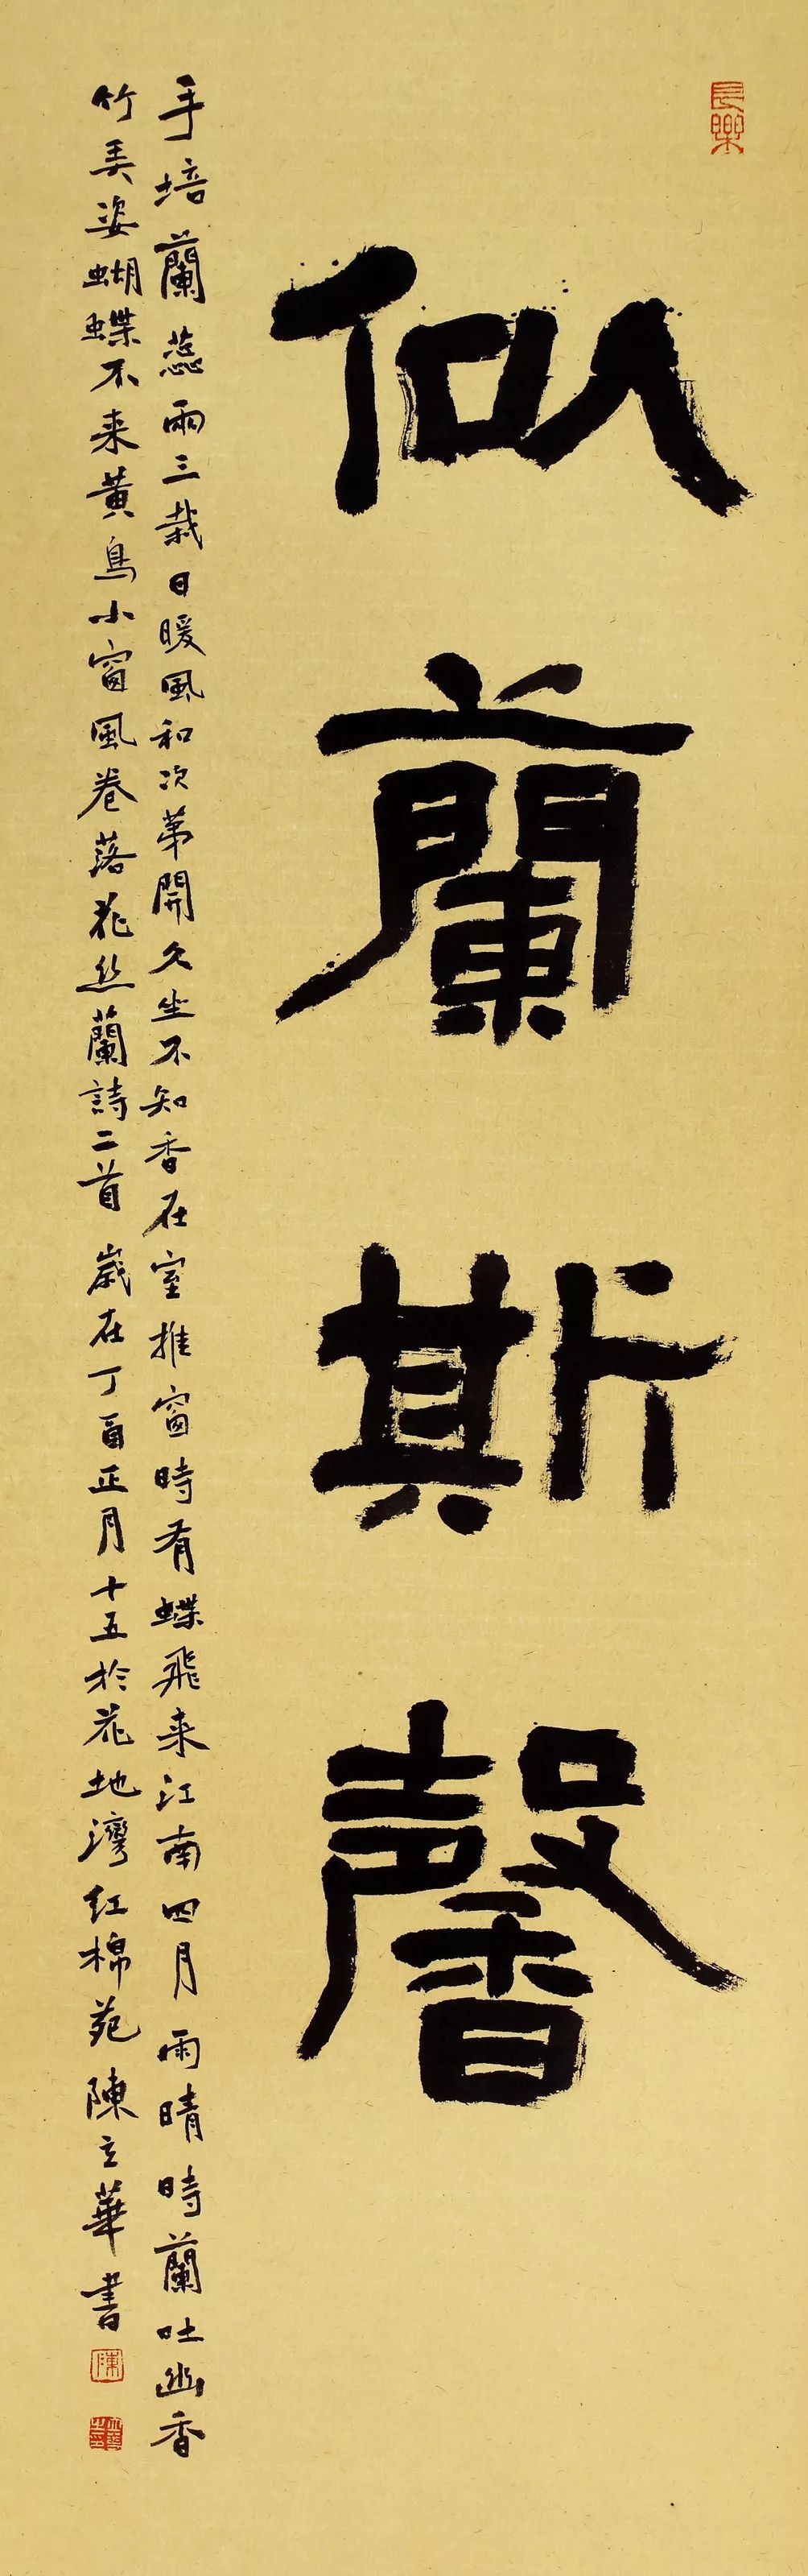 長樂
似蘭斯馨
手培蘭蕊兩三栽日暖風和次第開久坐不知香在室推窗時有蝶飛来江南四月雨晴時蘭吐幽香
竹弄姿蝴蝶不来黄鳥小窗風卷落花丝蘭詩二首 歲在丁酉正月十五於花地灣红棉苑陳立華書
陳